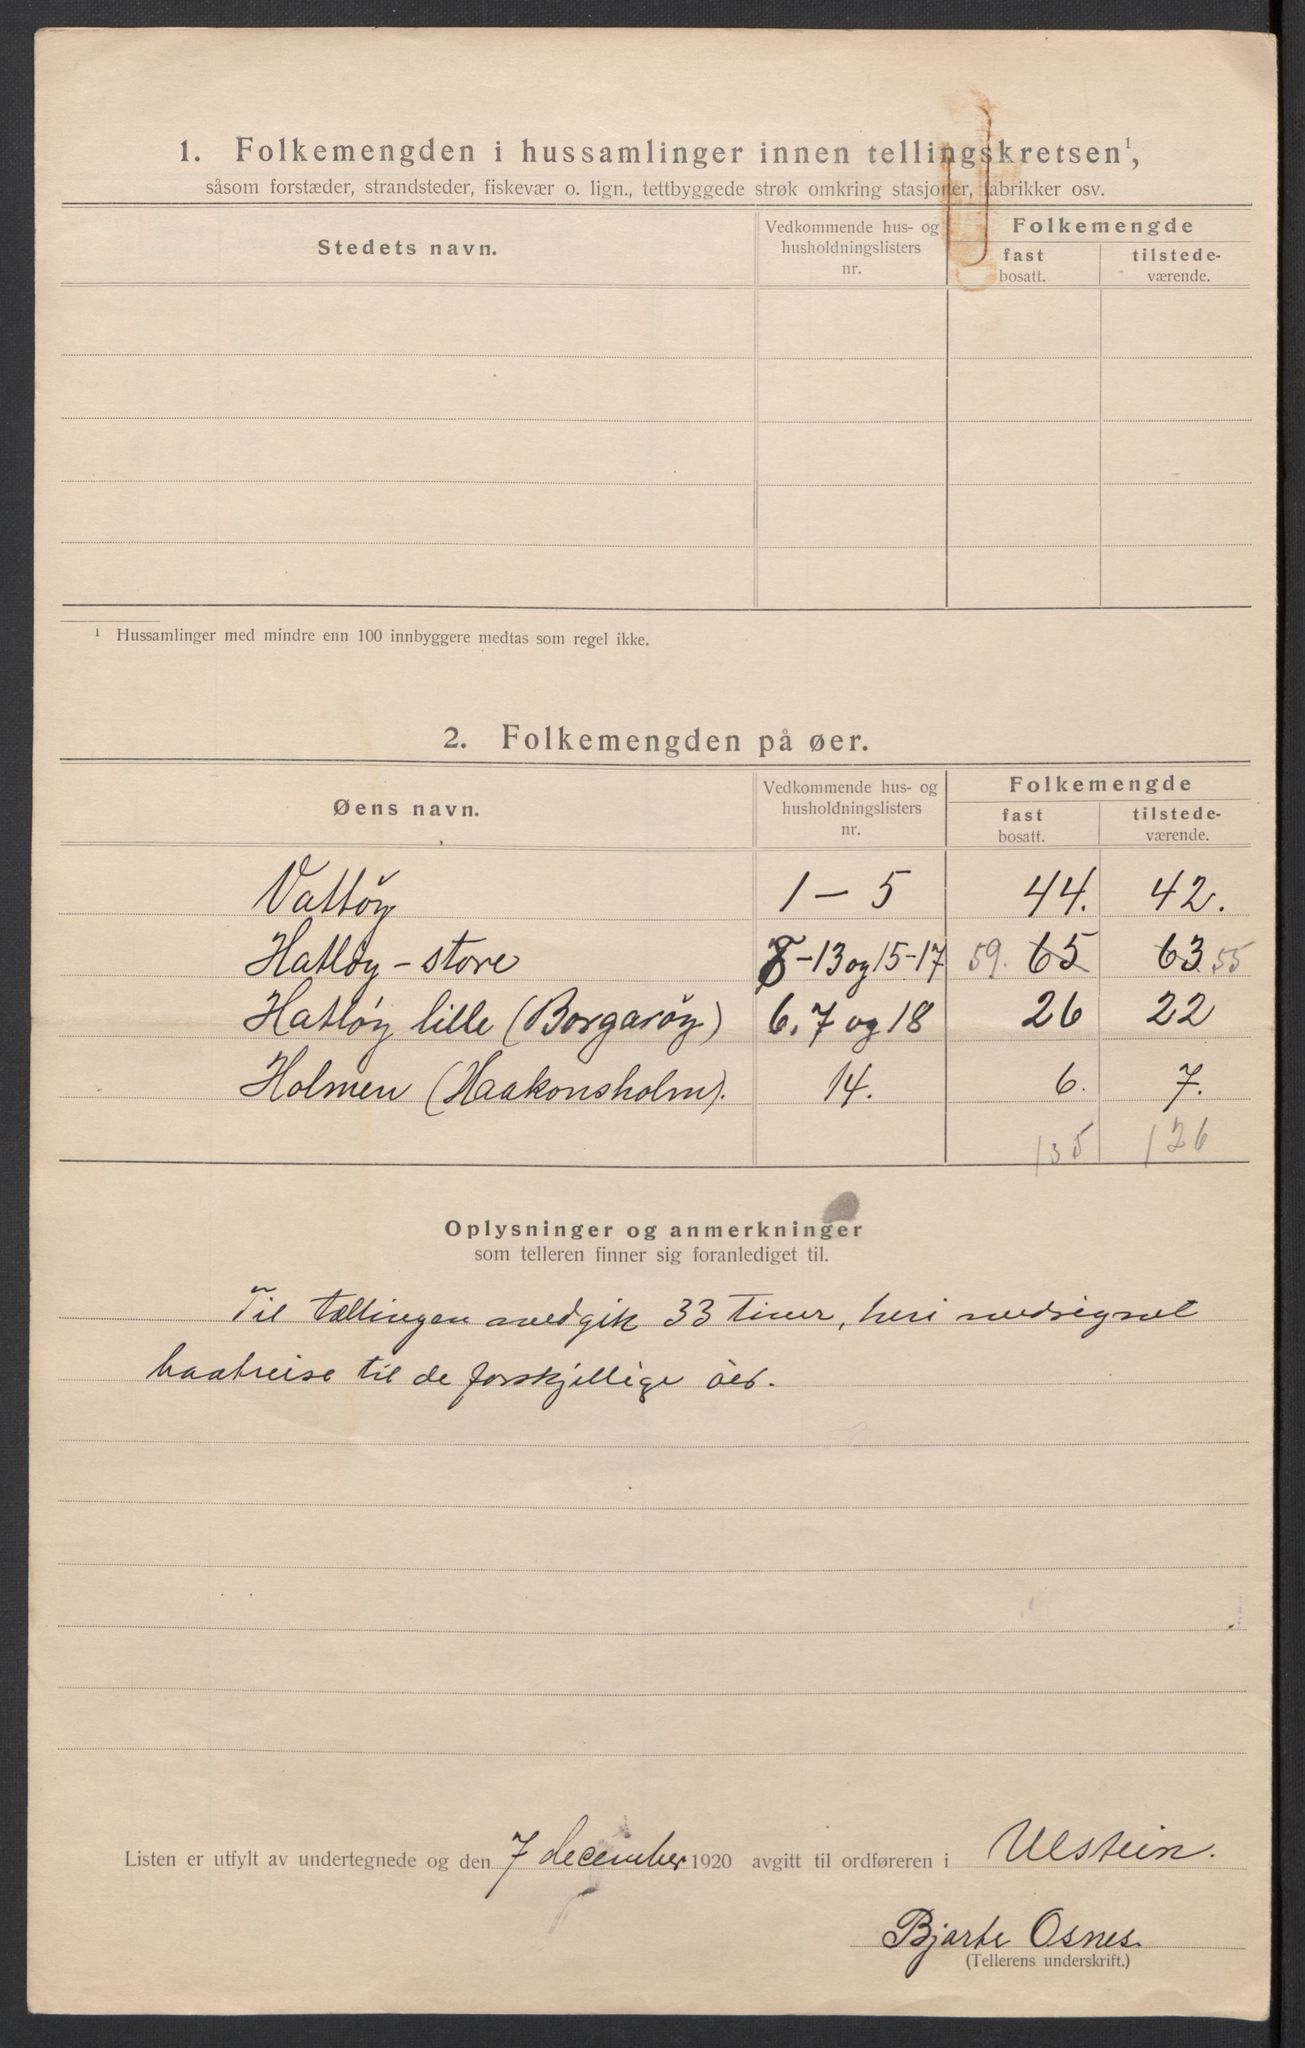 1. Folkemengden i hussamlinger innen tellingskretsen¹,
såsom forstæder, strandsteder, fiskevær o. lign., tettbyggede strøk omkring stasjoner, fabrikker osv.
Stedets navn. Vedkommende hus- og husholdningslisters nr. Folkemengde
fast bosatt. tilstede-værende.
¹ Hussamlinger med mindre enn 100 innbyggere medtas som regel ikke.
2. Folkemengden på øer.
Øens navn. Vedkommende hus- og husholdningslisters nr. Folkemengde
fast bosatt. tilstede-værende.
Vattöy 1 - 5 44. 42.
Hatløy - store 8-13 og 15-17 59. 65 63 55
Hatløy lille (Borgarøy) 6, 7 og 18 26 22
Holmen (Haakonsholm). 14. 6. 7.
135 126
Oplysninger og anmerkninger
som telleren finner sig foranlediget til.
Til tællingen medgik 33 timer, heri medregnet
baatreise til de forskjellige øer.
Listen er utfylt av undertegnede og den 7 december 1920 avgitt til ordføreren i Ulstein.
Bjarte Osnes.
(Tellerens underskrift.)